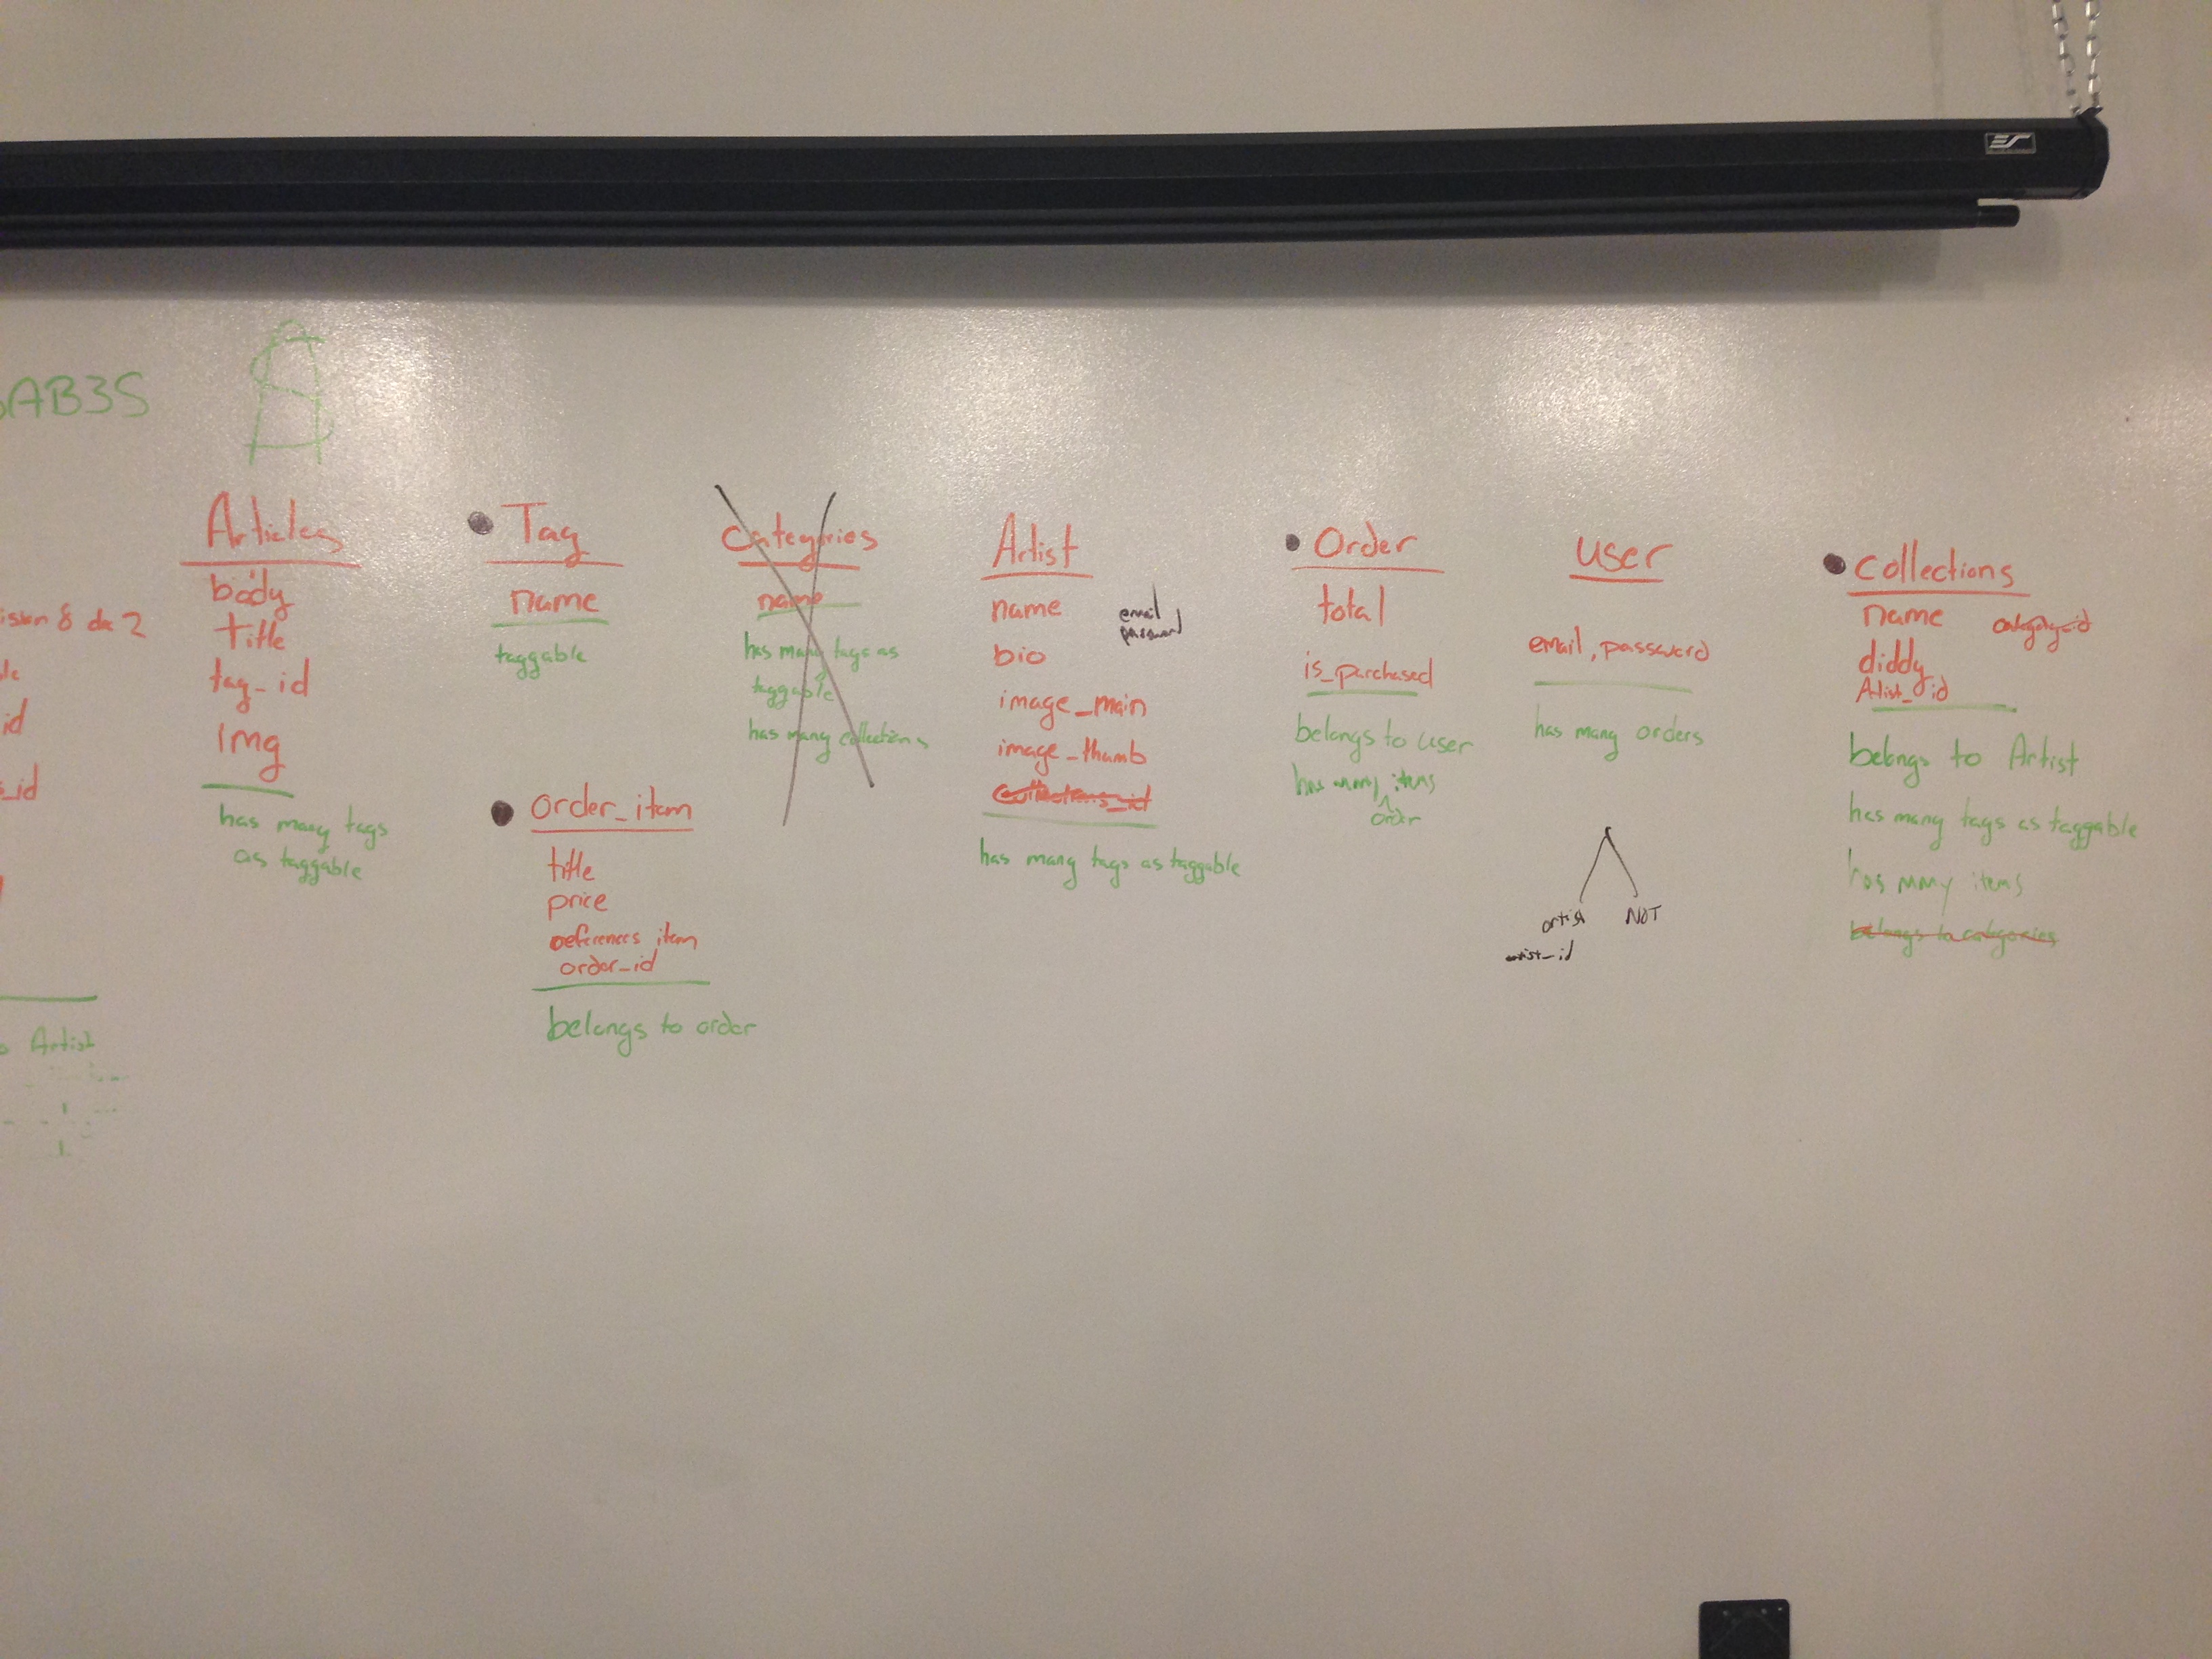 AB3S
Articles
body
Title
tag_id
Img
has many tags
as taggable
Tag
name
taggable
order_item
title
price
references item
order_id
belongs to order
Categories
name
has many tags as
taggable
has many collections
Artist
name
email
password
bio
image_main
image_thumb
collections_id
has many tags as taggable
Order
total
is_purchased
belongs to user
has many items
order
user
email, password
has many orders
artist NOT
artist_id
Collections
name category_id
diddy
Artist_id
belongs to Artist
has many tags as taggable
has mmy items
belongs to categories
id
_id
Artist
ES